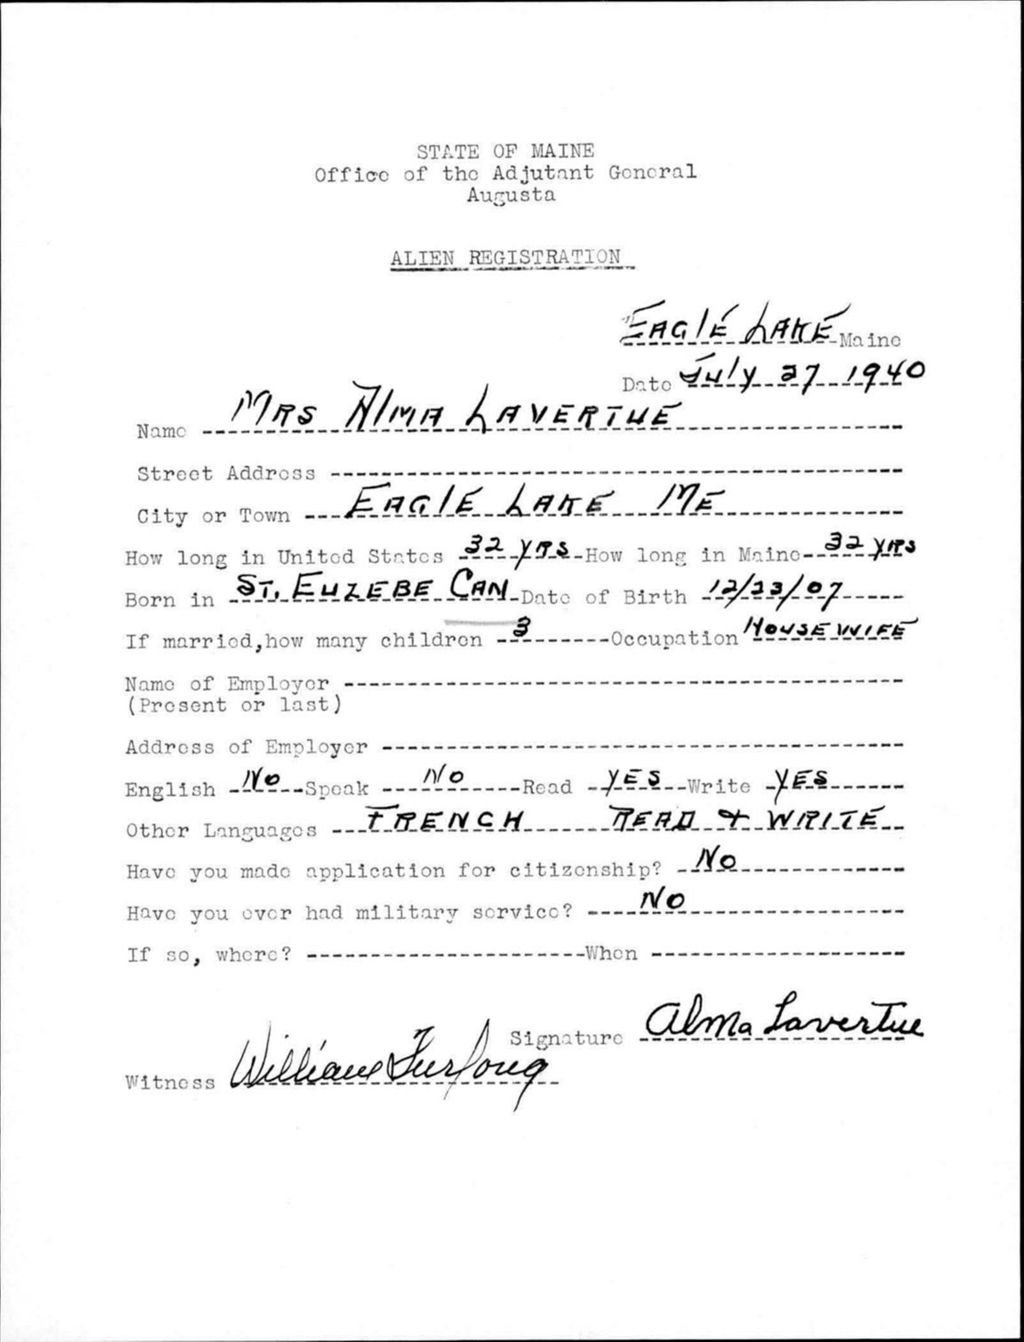 STATE OF MAINE
Office of the Adjutant General
Augusta
ALIEN REGISTRATION
EAGLE LAKE Maine
Date July 27 1940
Name MRS Alma LAVERTUE
Street Address
City or Town EAGLE LAKE ME
How long in United States 32 yrs How long in Maine 32 yrs
Born in ST. EUZEBE CAN Date of Birth 12/23/07
If married,how many children 3 Occupation HOUSEWIFE
Name of Employer
(Present or last)
Address of Employer
English No Speak No Read YES Write YES
Other Languages FRENCH READ + WRITE
Have you made application for citizenship? No
Have you ever had military service? No
If so, where? When
Signature Alma Lavertue
Witness William Furlong